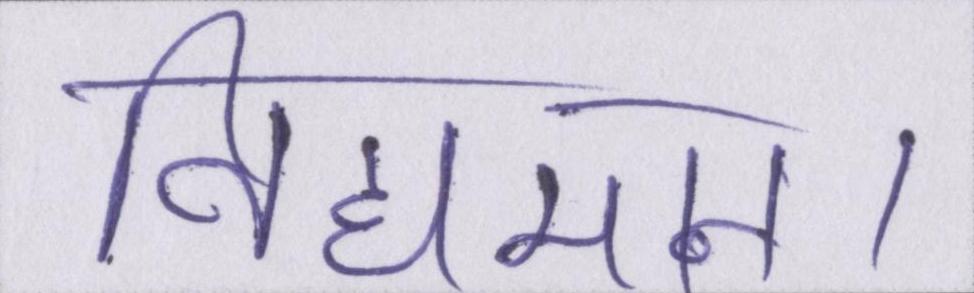 विद्यमान।